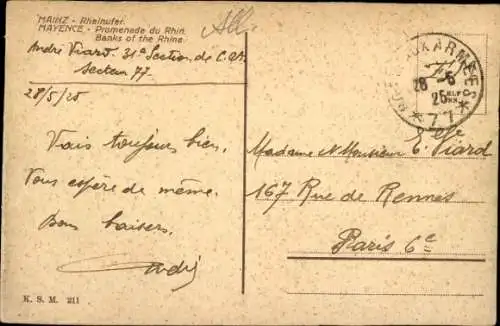 MAINZ - Rheinufer.
MAYENCE - Promenade du Rhin.
Banks of the Rhine
All.
André Viard 31e Section de C.O.A.
Secteur 77
28/5/25
Vais toujours bien.
Vous espère de même.
Bons baisers.
André
K. S. M. 211
28 - 5
25
* 77 *
Madame & Monsieur E. Viard
167 Rue de Rennes
Paris 6e